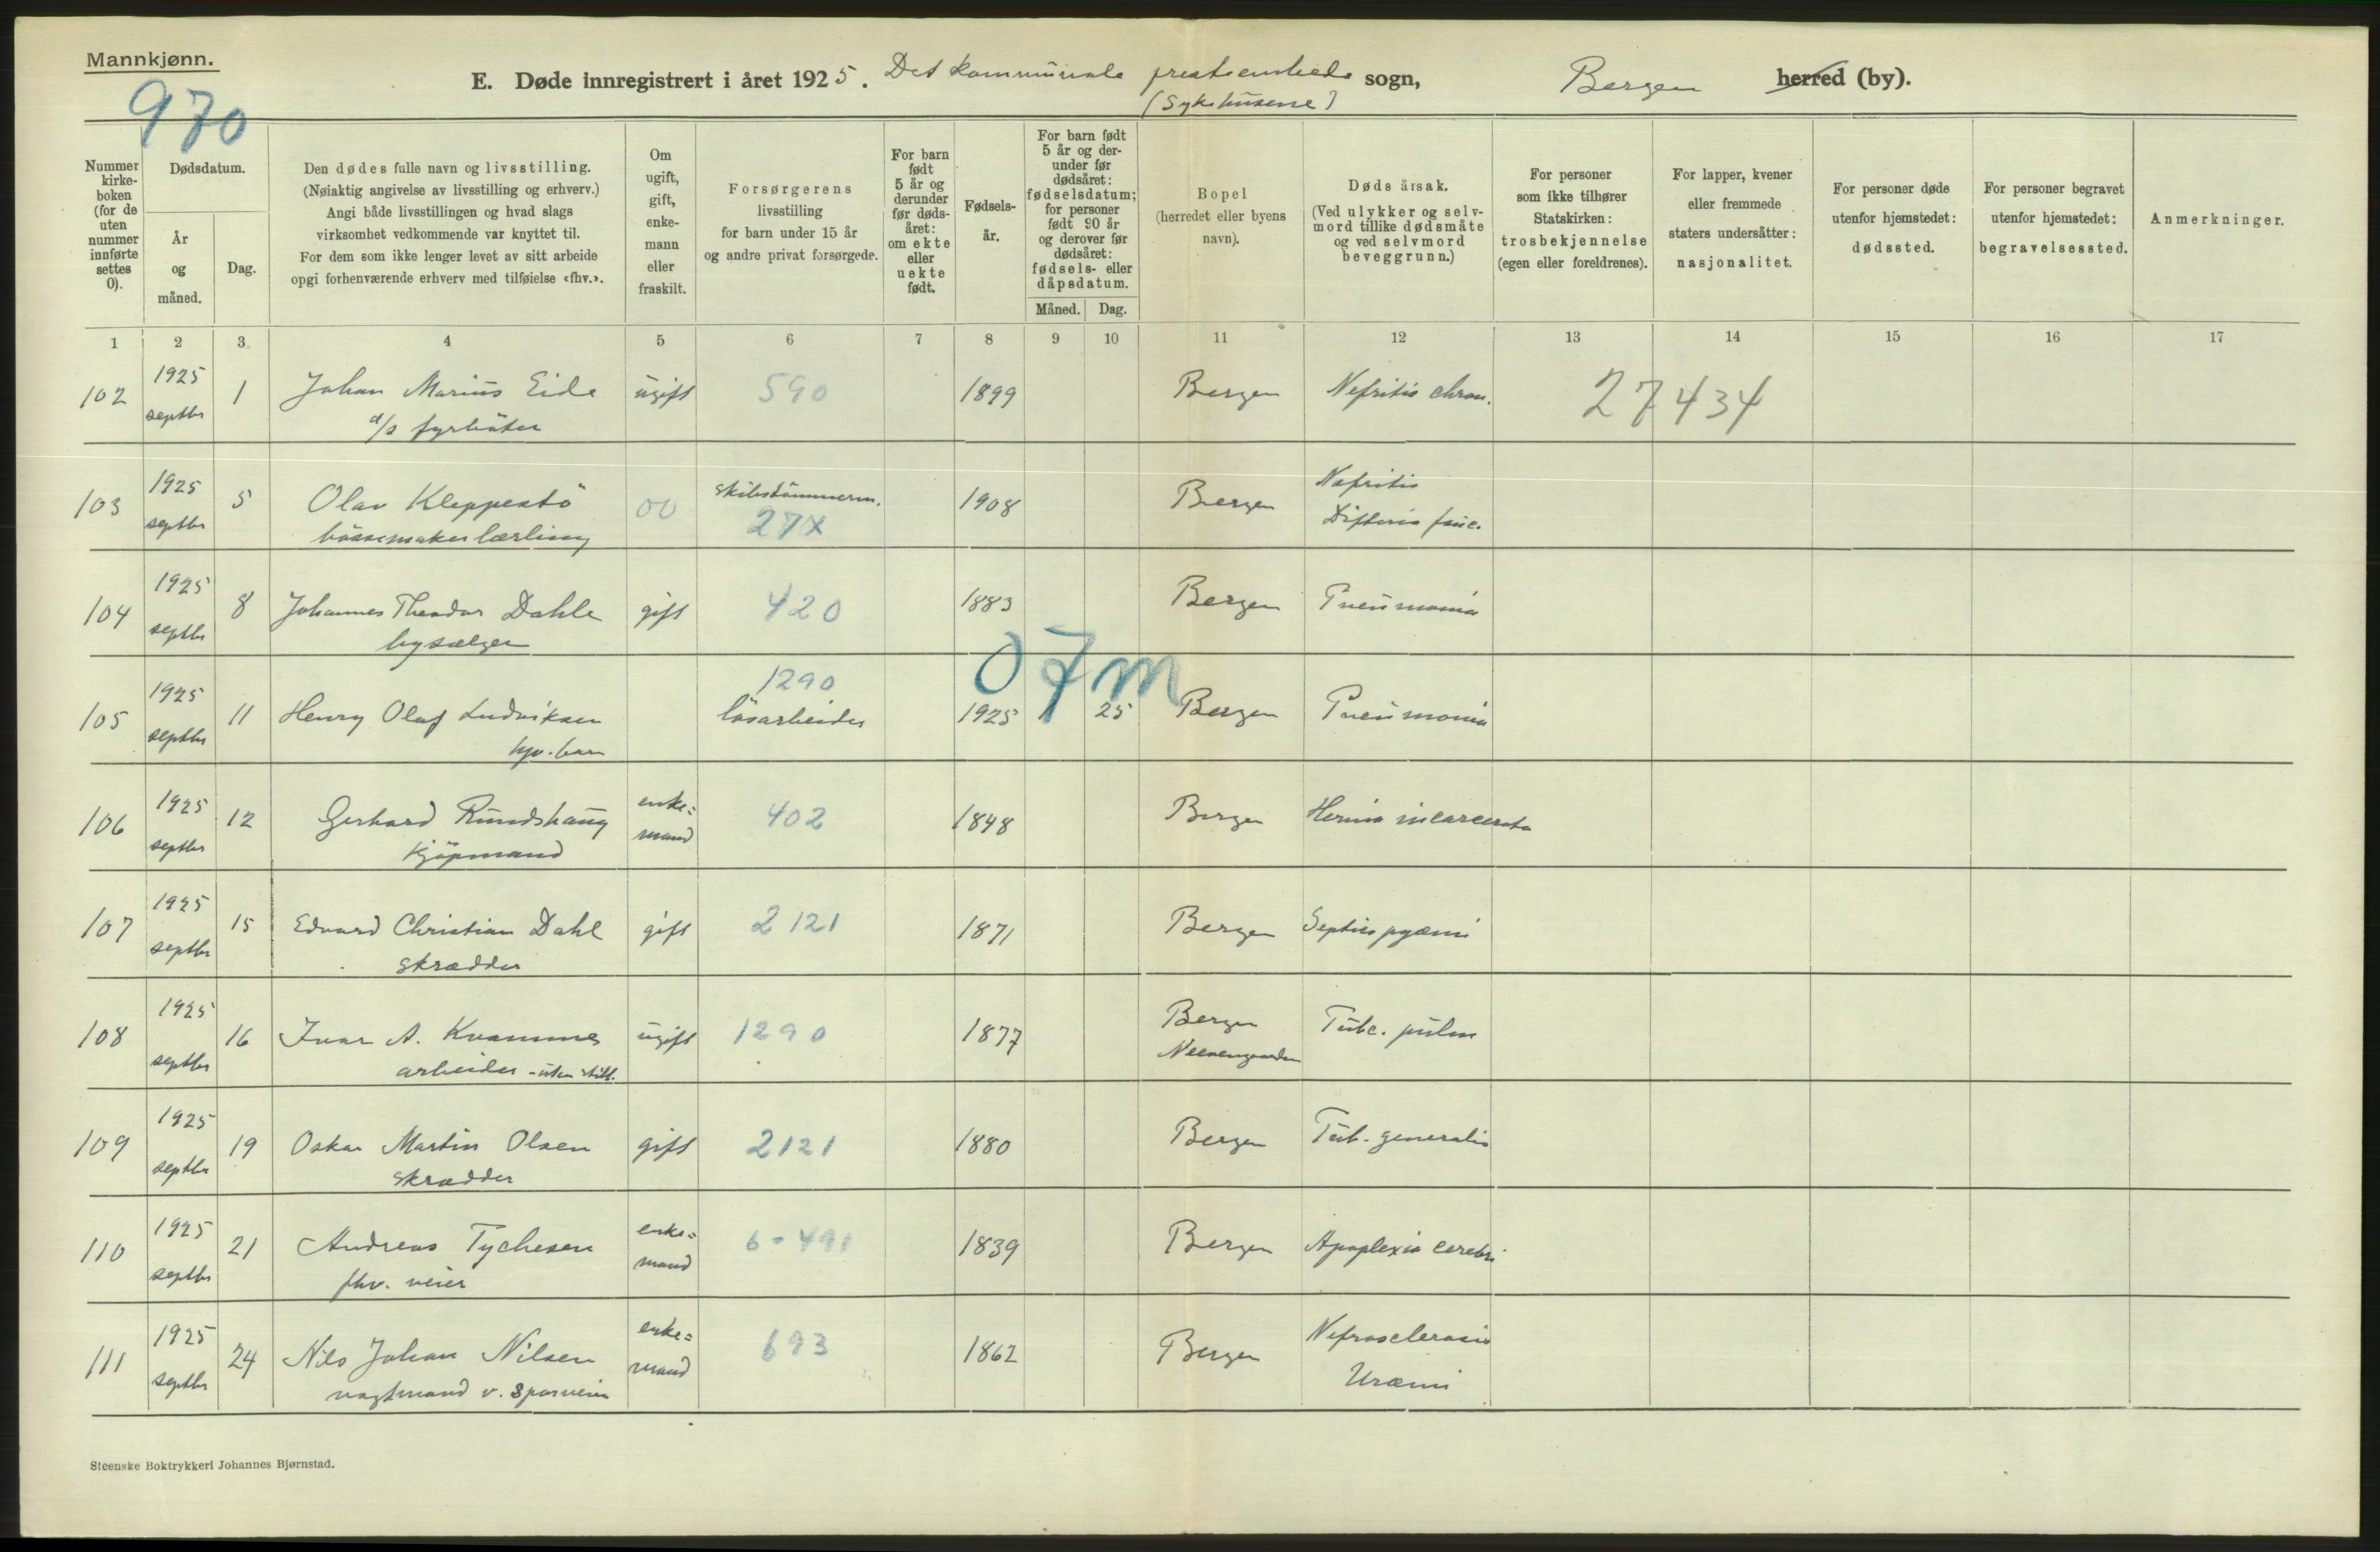 Mannkjønn.
970
E. Døde innregistrert i året 1925. Det kommunale presteembede sogn, Bergen herred (by).
(Sykehusene)
Nummer kirkeboken (for de uten nummer innførte settes 0).
Dødsdatum.
År og måned.
Dag.
Den dødes fulle navn og livsstilling.
(Nøiaktig angivelse av livsstilling og erhverv.)
Angi både livsstillingen og hvad slags
virksomhet vedkommende var knyttet til.
For dem som ikke lenger levet av sitt arbeide
opgi forhenværende erhverv med tilføielse «fhv.».
Om ugift, gift, enkemann eller fraskilt.
Forsørgerens
livsstilling
for barn under 15 år
og andre privat forsørgede.
For barn født 5 år og derunder før dødsåret: om ekte eller uekte født.
Fødselsår.
For barn født 5 år og derunder før dødsåret: fødselsdatum; for personer født 90 år og derover før dødsåret: fødsels- eller dåpsdatum.
Måned. Dag.
Bopel
(herredet eller byens
navn).
Dødsårsak.
(Ved ulykker og selvmord tillike dødsmåte og ved selvmord beveggrunn.)
For personer
som ikke tilhører
Statskirken:
trosbekjennelse
(egen eller foreldrenes).
For lapper, kvener
eller fremmede
staters undersåtter:
nasjonalitet.
For personer døde
utenfor hjemstedet:
dødssted.
For personer begravet
utenfor hjemstedet:
begravelsessted.
Anmerkninger.
1 2 3 4 5 6 7 8 9 10 11 12 13 14 15 16 17
102 1925 septbr 1 Johan Marius Eide ugift 590 1899 Bergen Nefritis chron. 27434
d/s fyrbøter
103 1925 septbr 5 Olav Kleppestö 00 skibstømmerm. 27x 1908 Bergen Nefritis
bøssemakerlærling Difteria fauc.
104 1925 septbr 8 Johannes Theodor Dahle gift 420 1883 Bergen Pneumonia
bysælger
07m
105 1925 septbr 11 Henry Olaf Ludviksen 1290 løsarbeider 1925 25 Bergen Pneumonia
106 1925 septbr 12 Gerhard Rundshaug enkemand 402 1848 Bergen Hernia incarcerata
kjøpmand
107 1925 septbr 15 Edvard Christian Dahl gift 2121 1871 Bergen Septico pyæmi
skrædder
108 1925 septbr 16 Ivar A. Kvamme ugift 1290 1877 Bergen Neevengaarden Tub. pulm
arbeider - uten still.
109 1925 septbr 19 Oskar Martin Olsen gift 2121 1880 Bergen Tub. generalis
skrædder
110 1925 septbr 21 Andreas Tychesen enkemand 1839 Bergen Apoplexia cerebri
fhv. veier
111 1925 septbr 24 Nils Johan Nilsen enkemand 693 1862 Bergen Nefrosclerosis
vagtmand v. Sporveien Uræmi
Steenske Boktrykkeri Johannes Bjørnstad.